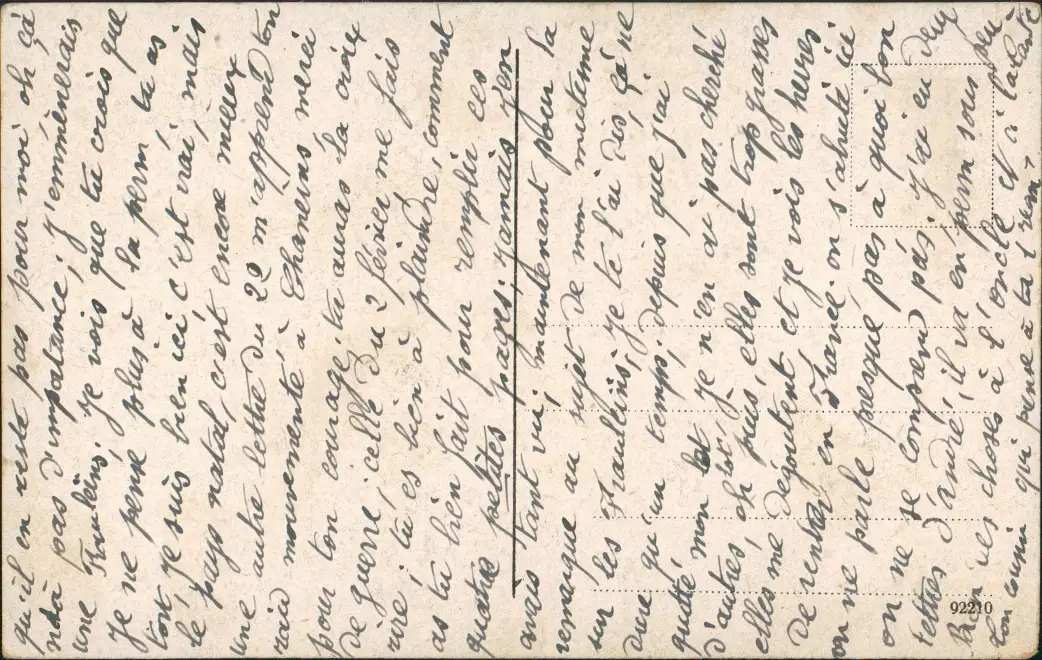 qu'il en reste pas pour moi oh çà
n'a pas d'importance; j'emmènerais
une Roulein; je vois que tu crois que
je ne pense plus à la perm tu as
tort je suis bien ici c'est vrai mais
le pays natal, c'est encore mieux
une autre lettre du 22 m'apprend ton
raid mouvementé à Chamerins merci
pour ton courage, tu auras la croix
de guerre; celle du 2 février me fais
rire; tu es bien à plaindre, comment
as tu bien fait pour remplir ces
quatre petites pages; jamais j'en
avais tant vu; maintenant pour la
remarque au sujet de mon mutisme
sur les je te l'ai dis, çà ne
dure qu'un temps; depuis que j'ai
quitté mon lot je n'en ai pas cherché
d'autres, oh flot; je
elles sont trop grasses
elles me dégoûtent et je vois les heures
de rentrer en France. on s'ahurit ici
on ne parle presque pas à quoi bon
on ne se comprend pas; j'ai eu deux
lettres d'André, il va en perm sous peu
Bien des choses à l'oncle et à la tante
ton cousin qui pense à ta
92210